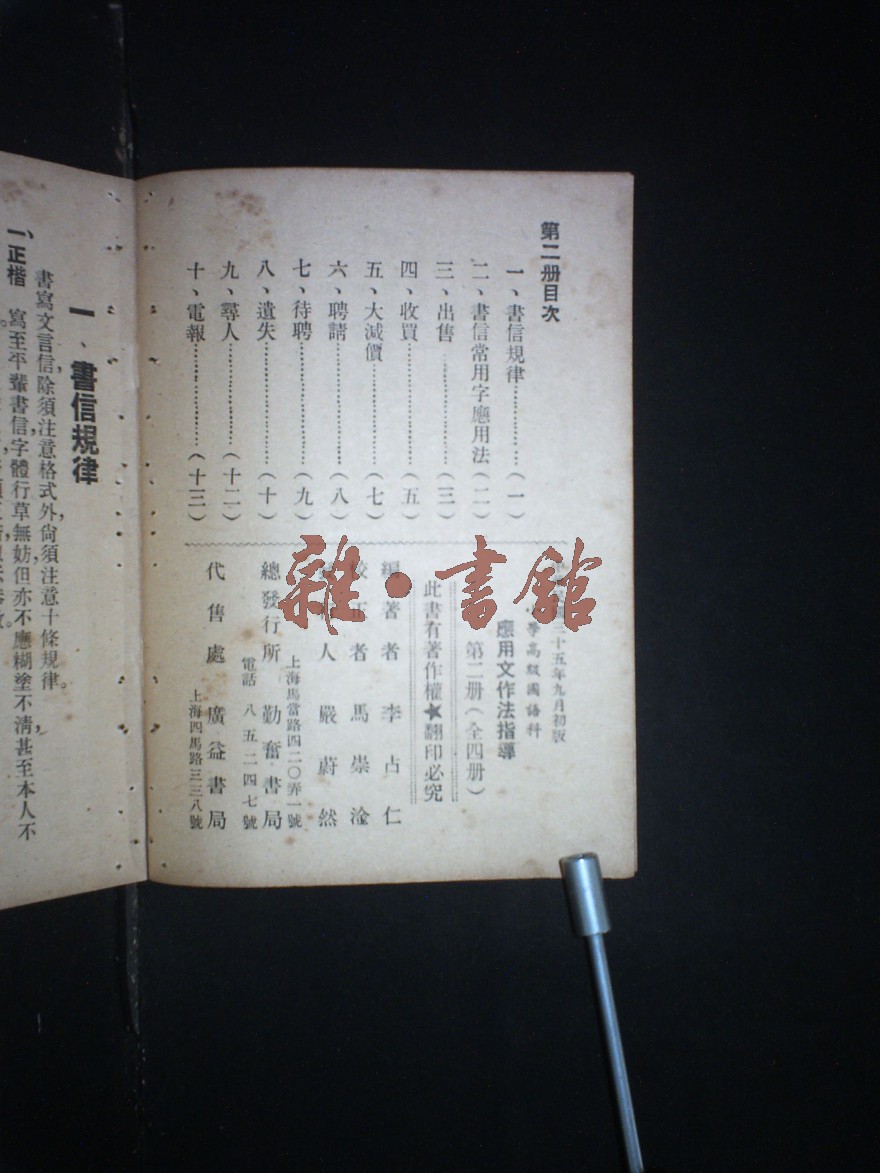 第二册目次
一、書信規律…………(一)
二、書信常用字應用法(二)
三、出售…………(三)
四、收買…………(五)
五、大減價…………(七)
六、聘請…………(八)
七、待聘…………(九)
八、遺失…………(十)
九、尋人…………(十二)
十、電報…………(十三)
三十五年九月初版
學高級國語科
應用文作法指導
第二册(全四册)
此書有著作權★翻印必究
編著者 李占仁
校正者 馬崇淦
人 嚴蔚然
上海馬當路四二〇弄一號
總發行所 勤奮書局
電話 八五二四七號
代售處 廣益書局
上海四馬路三三八號
雜·書館
一、書信規律
書寫文言信,除須注意格式外,尙須注意十條規律。
一、正楷 寫至平輩書信,字體行草無妨,但亦不應糊塗不淸,甚至本人不